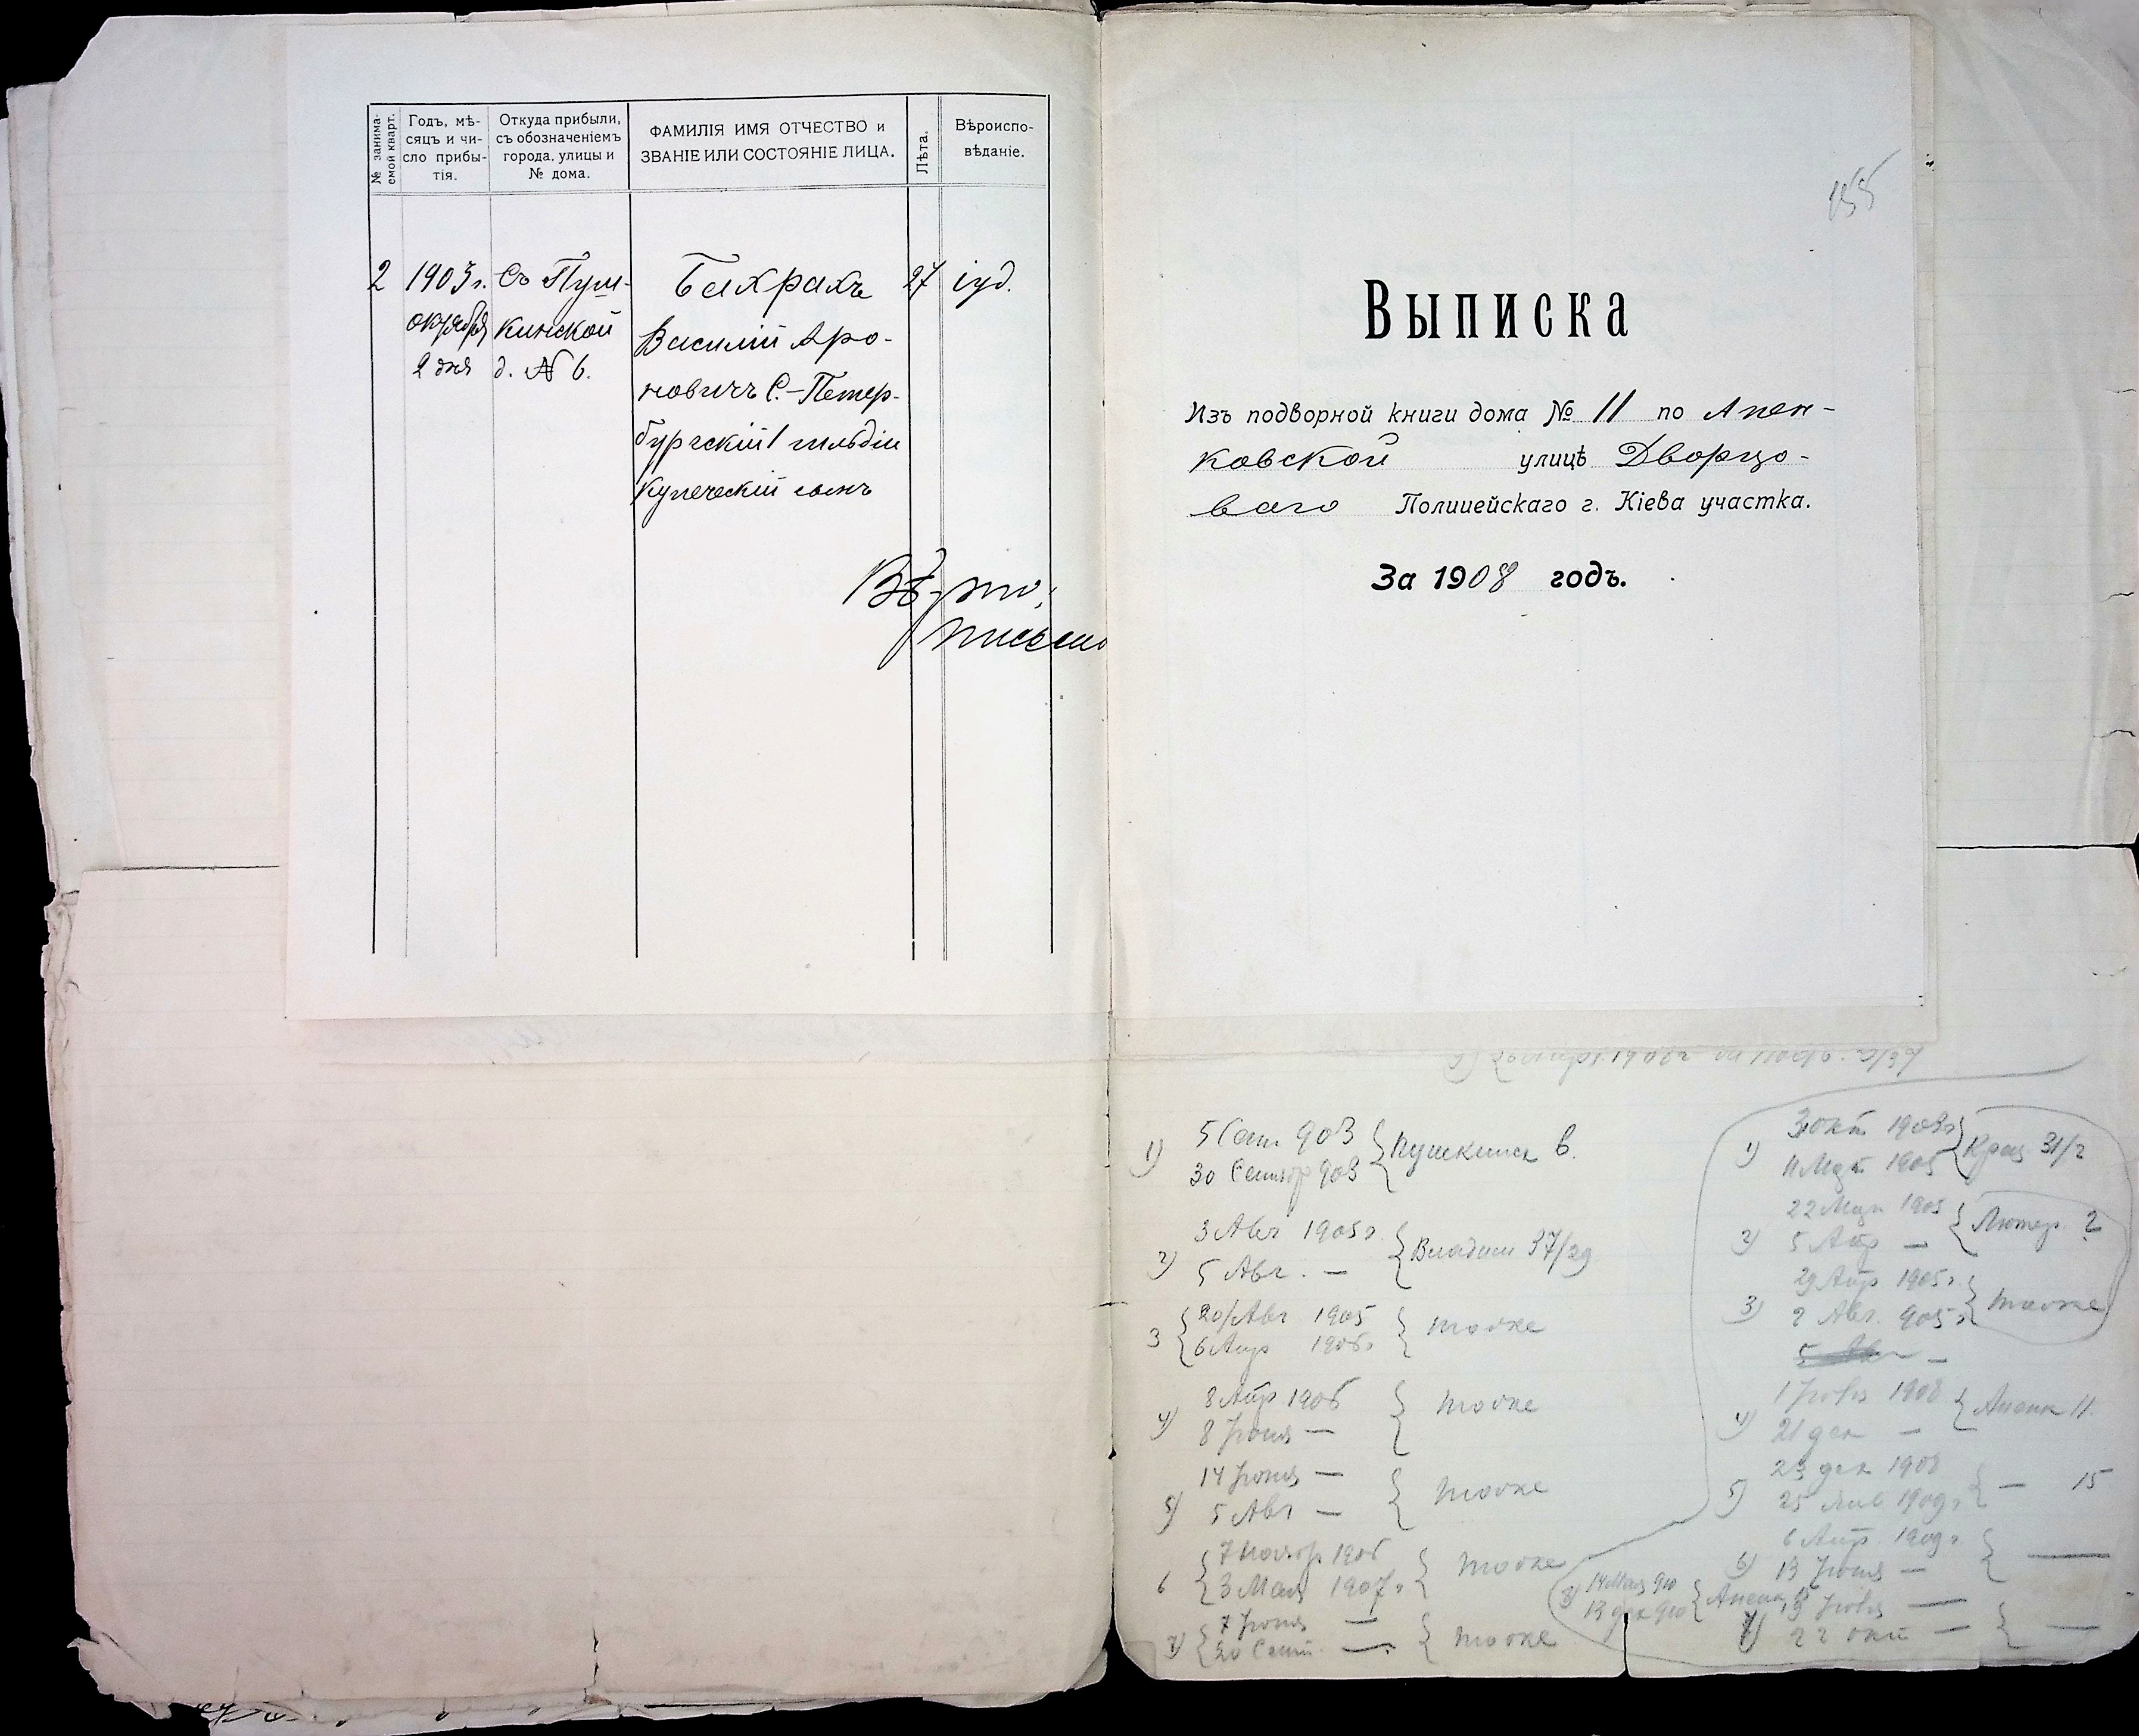 № занима-
емой кварт.
Годъ, мѣ-
сяцъ и чи-
сло прибы-
тія.
Откуда прибыли,
съ обозначеніемъ
города, улицы и
№ дома.
ФАМИЛІЯ ИМЯ ОТЧЕСТВО и
ЗВАНІЕ ИЛИ СОСТОЯНІЕ ЛИЦА.
Лѣта.
Вѣроиспо-
вѣданіе.
2
1903г.
октября
2 дня
Съ Пуш-
кинской
д. № 6.
Бахрахъ
Василій Аро-
новичъ С.-Петер-
бургскій 1 гильдіи
купеческій сынъ
27
іуд.
Вѣрно:
155
Выписка
Изъ подворной книги дома № 11 по Апен-
ковской улицѣ Дворцо-
ваго Полицейскаго г. Кіева участка.
За 1908 годъ.
1) 5 Сент 903
30 Сентяб 903
Пушкинск 6.
2) 3 Авг 1905г.
5 Авг. —
Владим 37/29
3 20/Авг 1905
6 Апр 1906г
тоже
4) 8 Апр 1906
8 Іюня —
тоже
5) 14 Іюня —
5 Авг —
тоже
6 7 Ноябр 1906
3 Мая 1907г
тоже
7) 7 Іюня —
20 Сент. —
тоже
1) 3 окт 1903г
11 Март 1905
Крещ 31/2
2) 22 Мар 1905
5 Апр —
Лютер. 2
3) 29 Апр 1905г.
2 Авг. 905г
тоже
4) 1 Іюля 1908
21 дек —
Апенк 11.
5) 23 дек 1908
25 Янв 1909г
— 15
6) 6 Апр. 1909г
13 Іюня —
7) 13 Іюля —
22 окт —
8) 14 Мая 910
13 дек 910